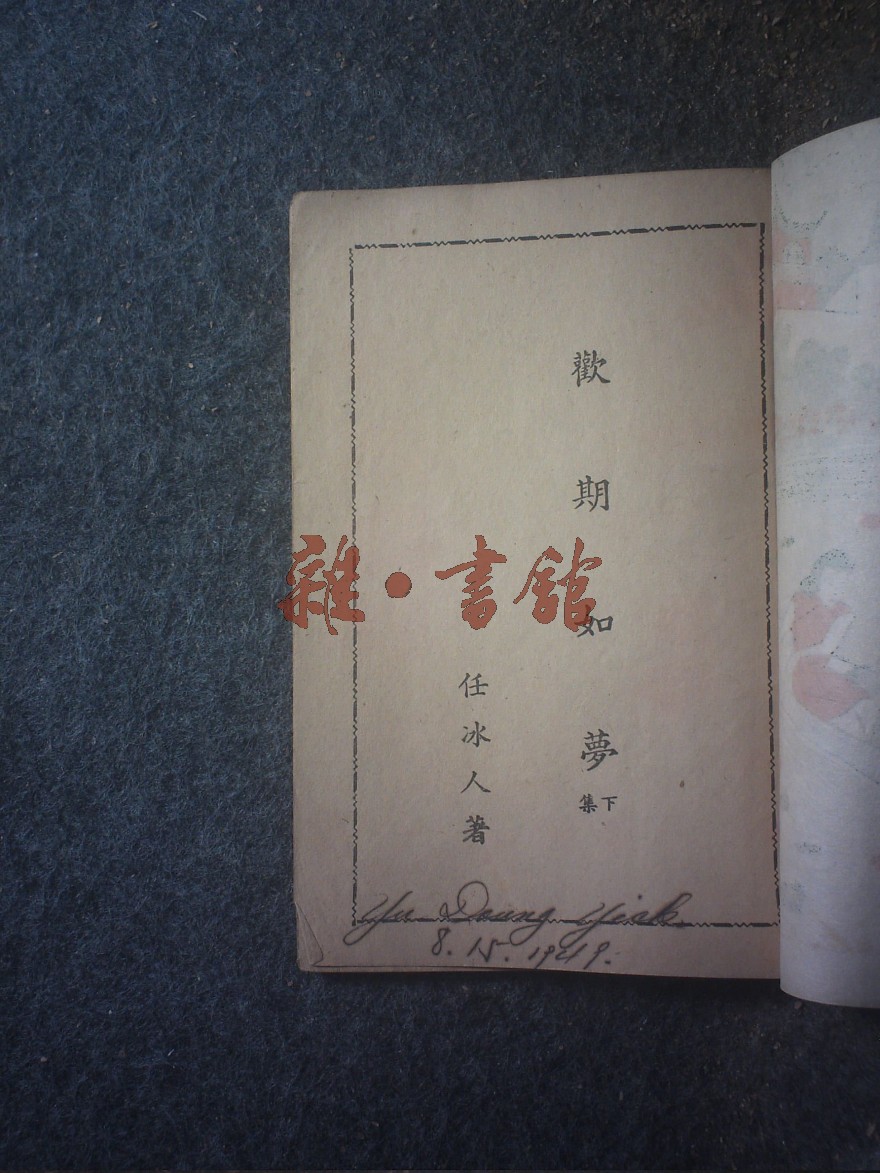 歡期如夢
下集
任冰人著
雜·書館
Yu Doung Yiak
8. 15. 1949.